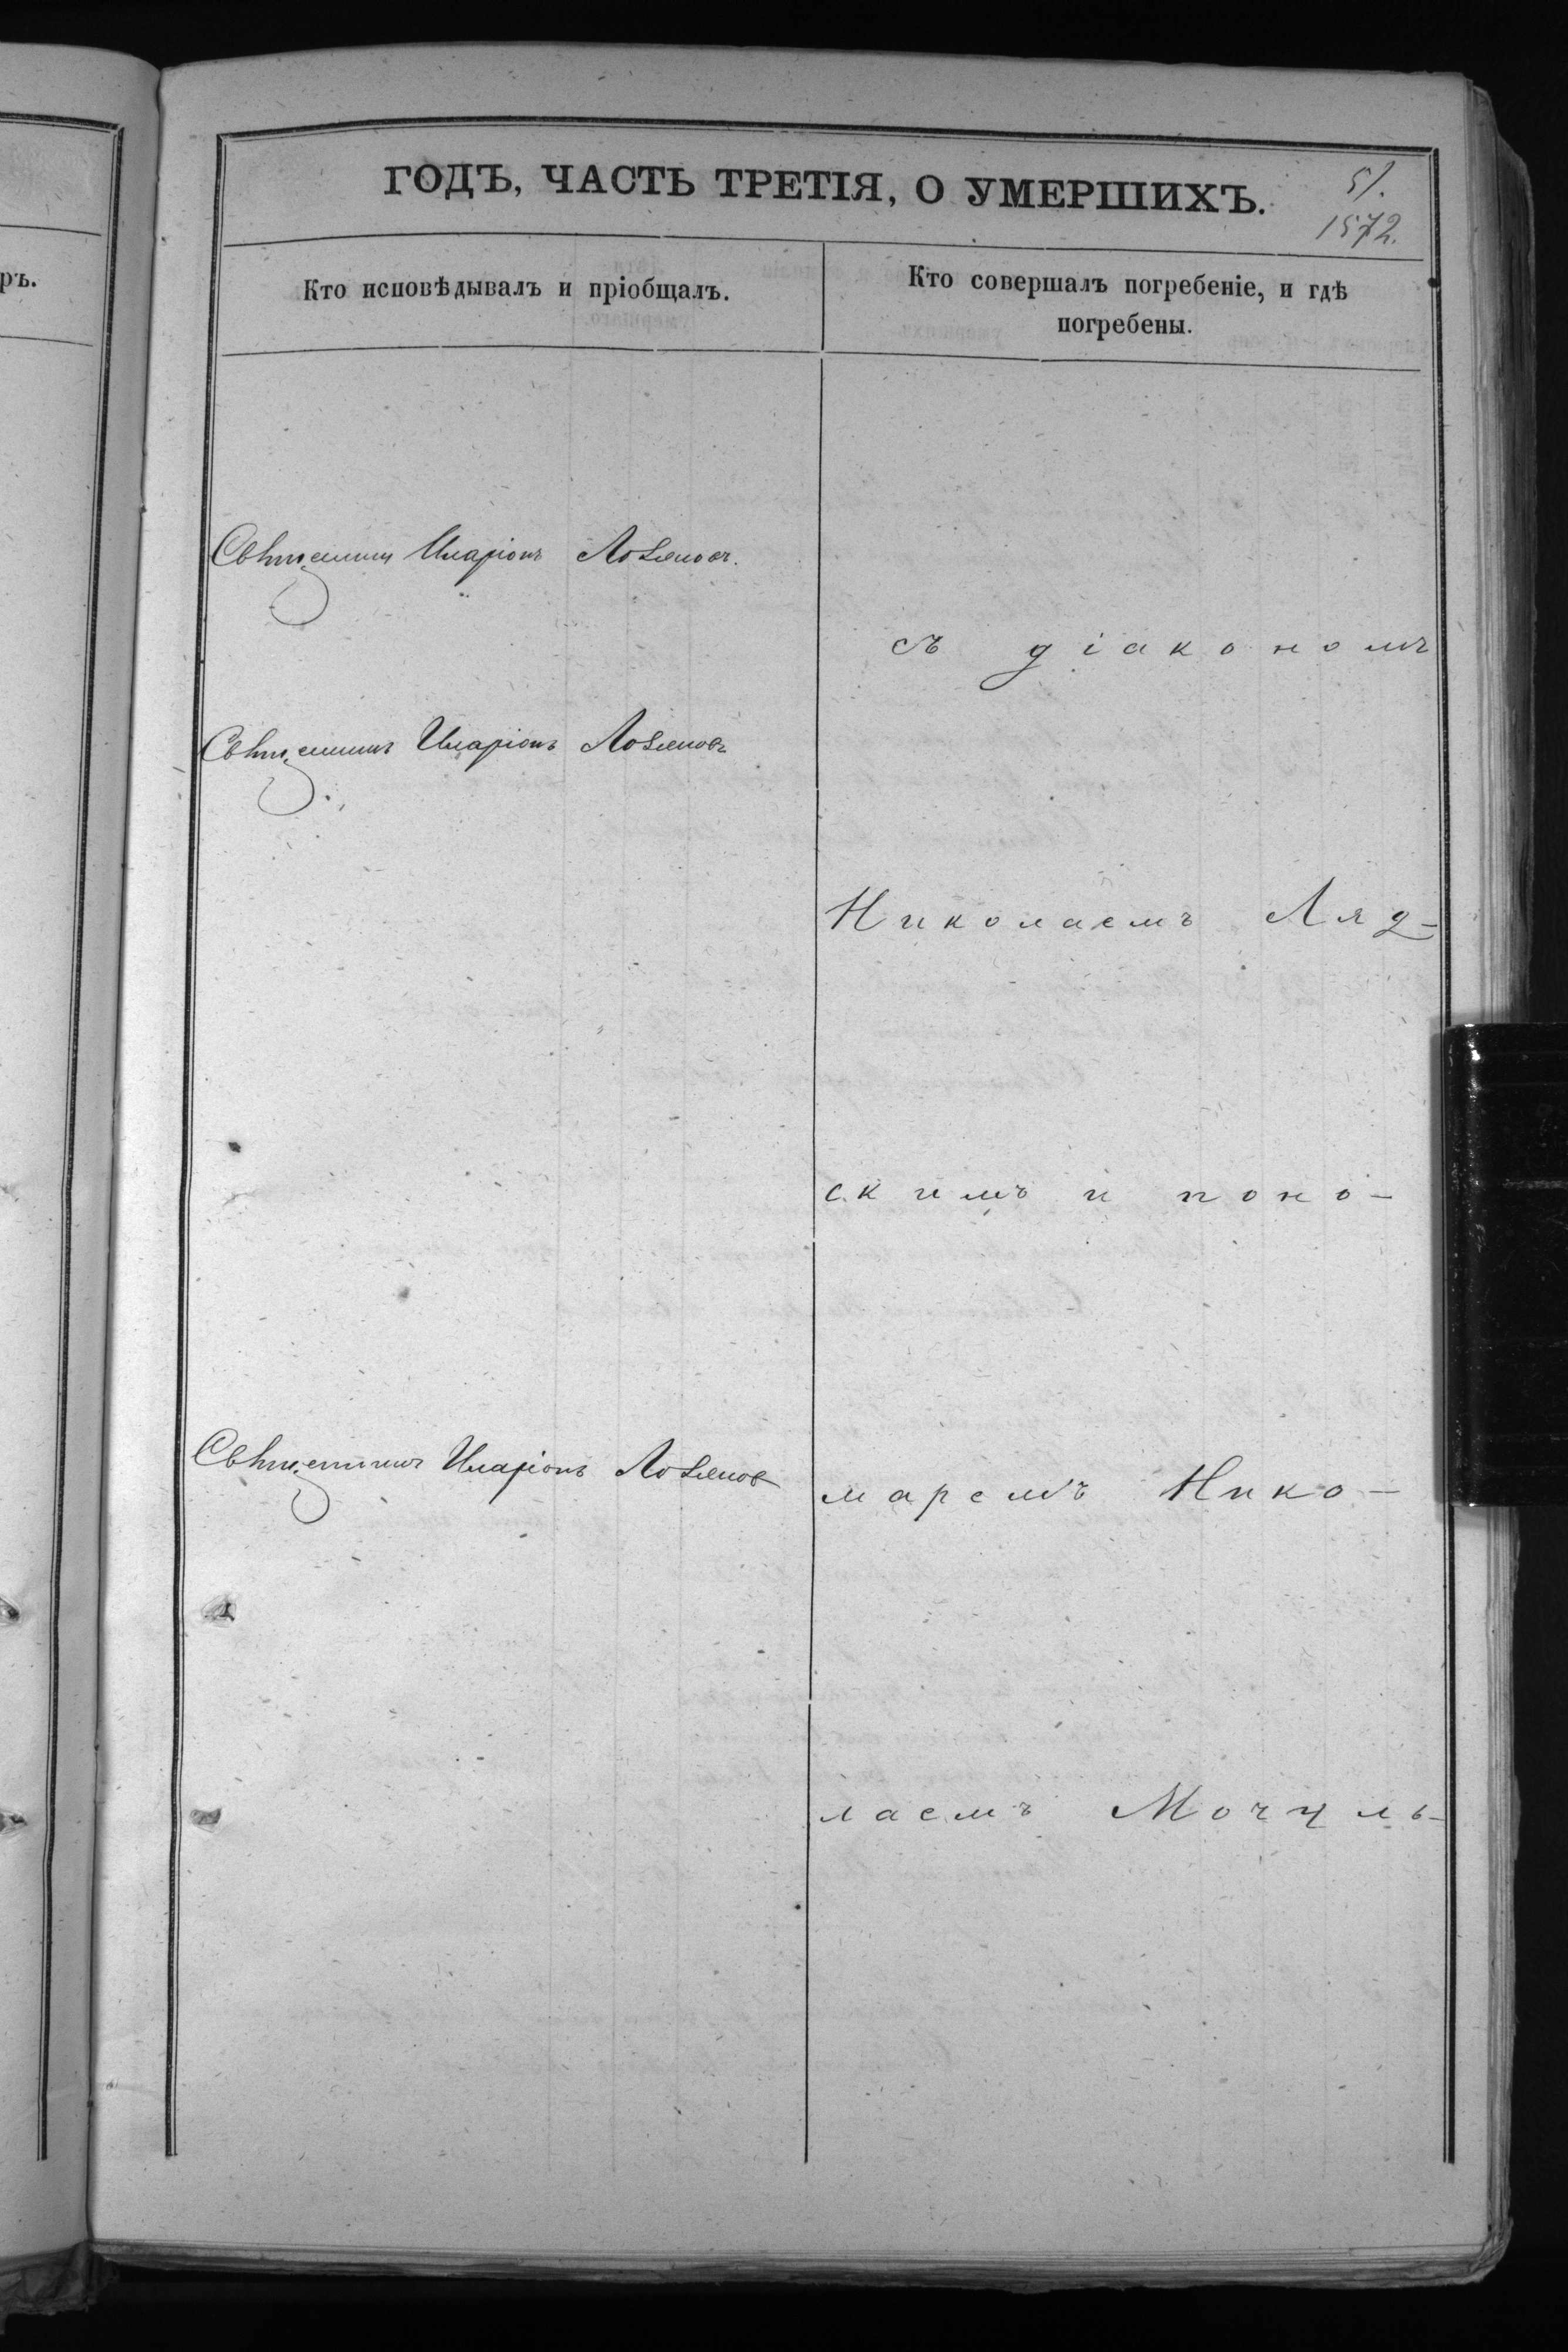 ръ.
ГОДЪ, ЧАСТЬ ТРЕТІЯ, О УМЕРШИХЪ.
51.
1572.
Кто исповѣдывалъ и пріобщалъ.
Кто совершалъ погребеніе, и гдѣ
погребены.
Священникъ Иларіонъ
съ діакономъ
Священникъ Иларіонъ
Николаемъ Ляд-
скимъ и поно-
Священникъ Иларіонъ
маремъ Нико-
лаемъ Мочуль-